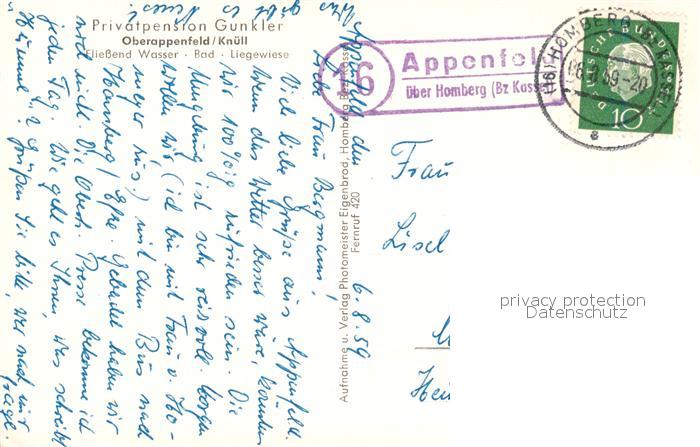 Privatpension Gunkler
Oberappenfeld / Knüll
Fließend Wasser · Bad · Liegewiese
16
Appenfeld
über Homberg (Bz Kassel)
(16) HOMBERG
59-20
a
DEUTSCHE BUNDESPOST
10
Aufnahme u. Verlag Photomeister Eigenbrod, Homberg Bez. Kassel
Fernruf 420
Frau
Lisel
Hei
privacy protection
Datenschutz
Appenfeld den 6.8.59
Liebe Frau Bergmann,
Viele liebe Grüße aus Appenfeld.
Wenn das Wetter besser wäre, könnten
wir 100%ig zufrieden sein. Die
Umgebung ist sehr reizvoll. Morgen
wollen wir (ich bin mit Frau v. Ho-
mit dem Bus nach
Homberg / Efze. Gebadet haben wir
noch nicht. Die Oberh. Presse bekomme ich
jeden Tag. Wie geht es Ihnen, was schreibt
Grüßen Sie bitte, wer nach mir
fragt.